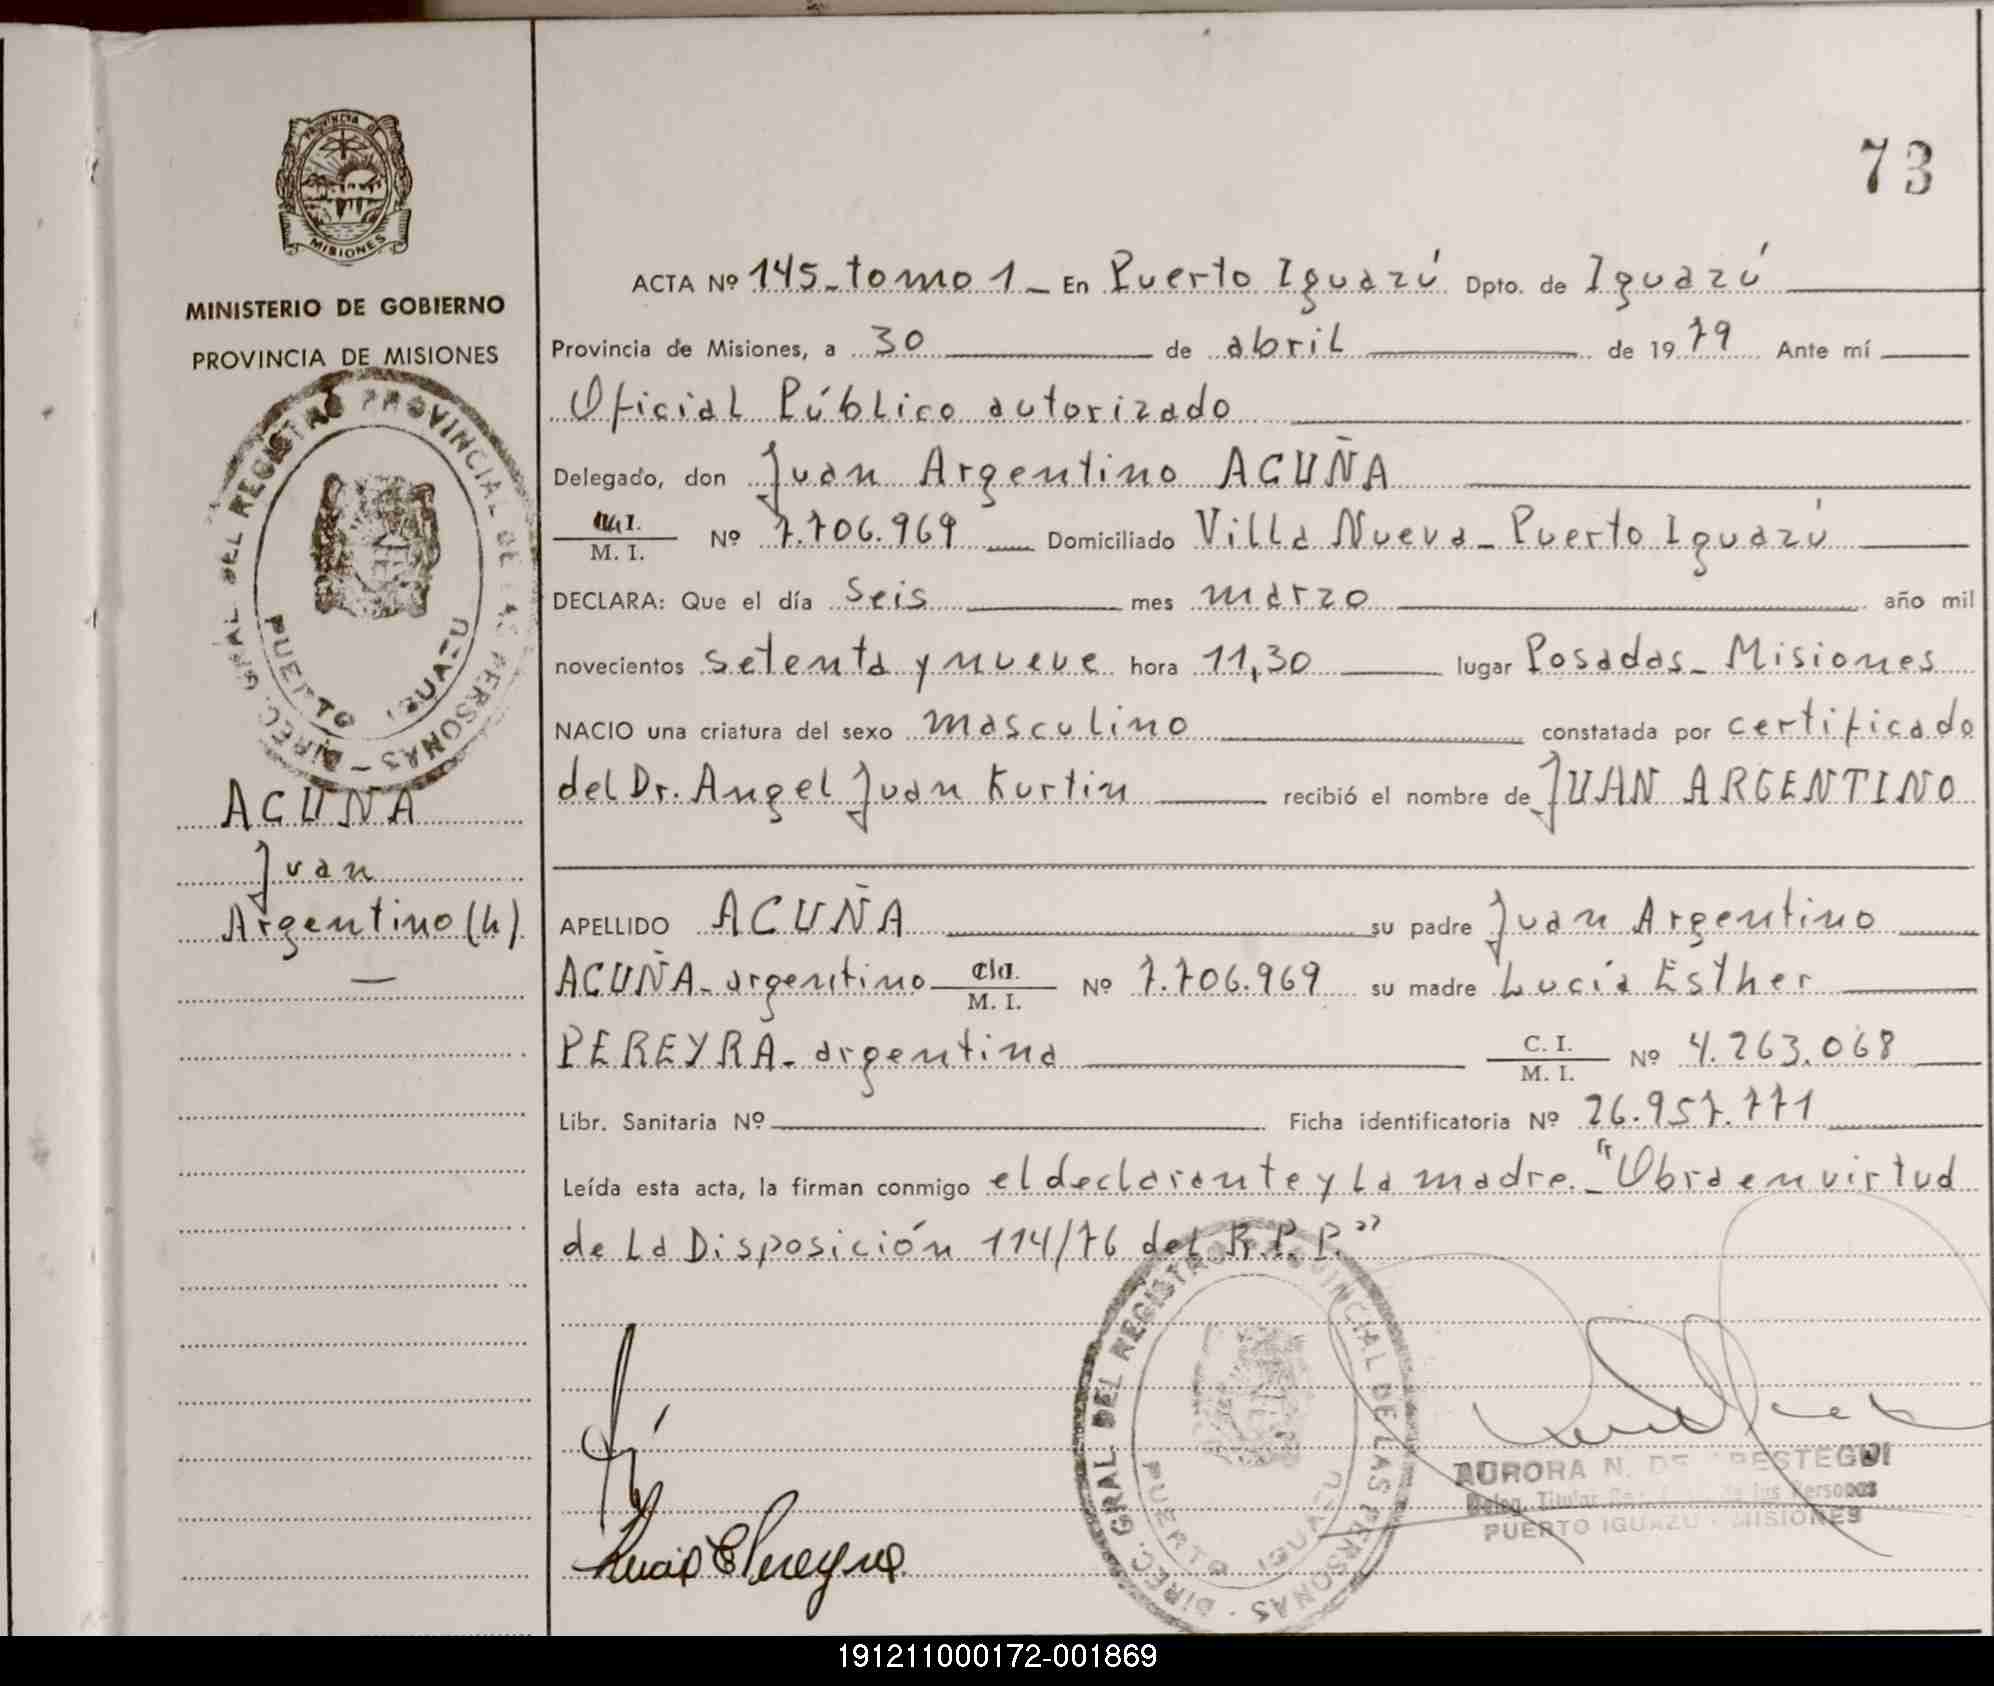 PROVINCIA DE
MISIONES
MINISTERIO DE GOBIERNO
PROVINCIA DE MISIONES
DIREC. GRAL DEL REGISTRO PROVINCIAL DE LAS PERSONAS -
PUERTO IGUAZU
ACUÑA
Juan
Argentino (h)
—
73
ACTA Nº 145_tomo 1_ En Puerto Iguazú Dpto. de Iguazú
Provincia de Misiones, a 30 de abril de 1979 Ante mí
Oficial Público autorizado
Delegado, don Juan Argentino ACUÑA
M. I. Nº 7.706.969 Domiciliado Villa Nueva_Puerto Iguazú
DECLARA: Que el día seis mes marzo año mil
novecientos setenta y nueve hora 11,30 lugar Posadas_Misiones
NACIO una criatura del sexo masculino constatada por certificado
del Dr. Angel Juan Kurtin recibió el nombre de JUAN ARGENTINO
APELLIDO ACUÑA su padre Juan Argentino
ACUÑA_argentino M. I. Nº 7.706.969 su madre Lucía Esther
PEREYRA_argentina C. I. M. I. Nº 4.263.068
Libr. Sanitaria Nº Ficha identificatoria Nº 26.957.771
Leída esta acta, la firman conmigo el declarante y la madre._"Obra en virtud
de la Disposición 114/76 del R.P.P."
DIREC. GRAL DEL REGISTRO PROVINCIAL DE LAS PERSONAS -
PUERTO IGUAZU
AURORA N. DE
Titular Personas
PUERTO IGUAZU - MISIONES
Lucia E Pereyra
191211000172-001869